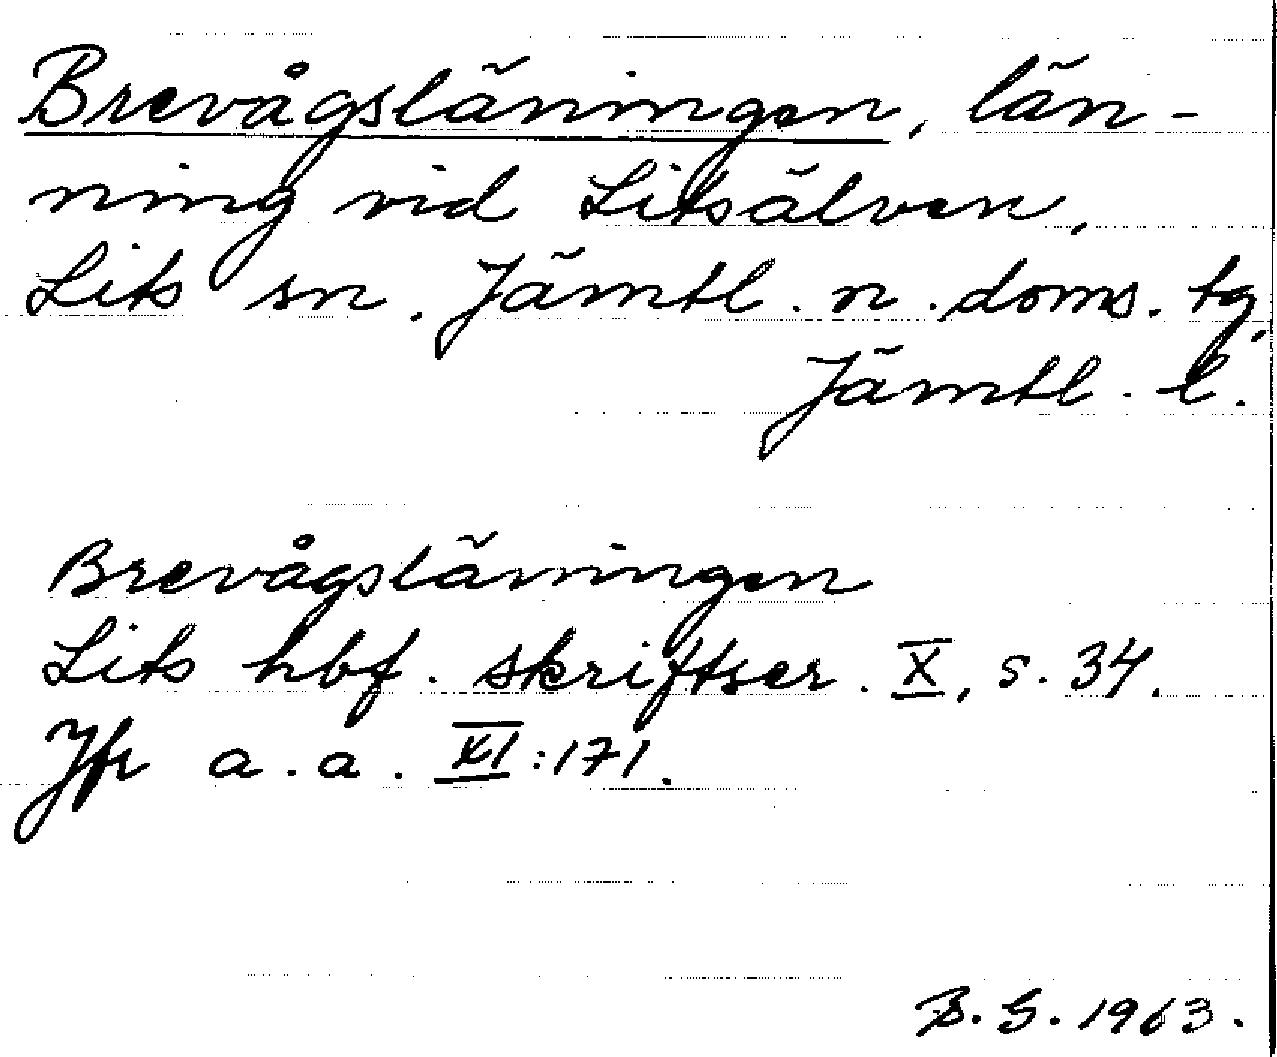 Brevågsläningen, län-
ning vid Litsälven,
Lits sn. Jämtl. n. doms. tg,
Jämtl. l.
Brevågsläningen
Lits hbf. skriftser. X, s. 34.
Jfr a. a. XI:171.
B. G. 1963.